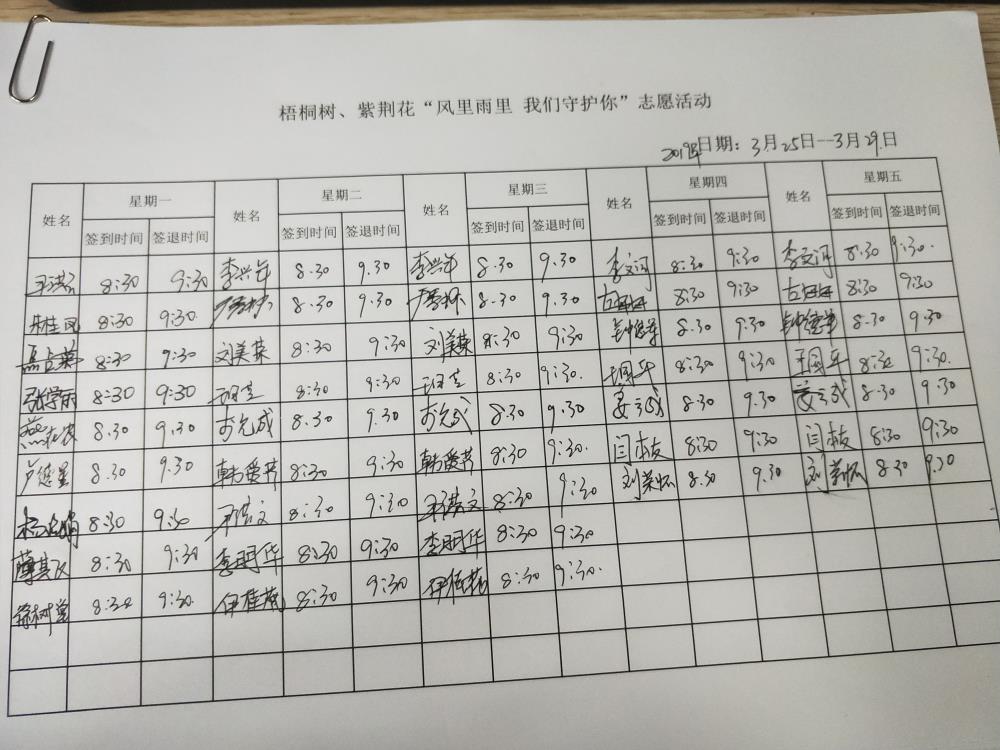 梧桐树、紫荆花“风里雨里 我们守护你”志愿活动
2019年日期：3月25日--3月29日
姓名 星期一 姓名 星期二 姓名 星期三 姓名 星期四 姓名 星期五
签到时间 签退时间 签到时间 签退时间 签到时间 签退时间 签到时间 签退时间 签到时间 签退时间
8:30 9:30 李兴年 8.30 9.30 李兴年 8.30 9.30 李文河 8:30 9:30 李文河 8.30 9:30.
朱桂凤 8:30 9:30. 8.30 9.30 8.30 9.30 8:30 9:30 8:30 9:30
8:30 9:30 刘美英 8:30 9:30 刘美英 8:30 9:30 8.30 9.30 8.30 9.30
张学丽 8:30 9:30 8:30 9:30 8:30 9:30. 8:30 9:30 王国平 8:30 9:30.
8.30 9.30 8.30 9.30 8.30 9.30 8.30 9.30 8.30 9.30
8.30 9.30 韩爱芳 8:30 9:30 韩爱芳 8:30 9:30. 闫本友 8:30 9:30 闫本友 8:30 9:30
8:30 9:30 8:30 9:30 王洪文 8:30 9:30 刘美怀 8.30 9.30 刘美怀 8.30 9.30
8:30 9:30 李明华 8:30 9:30 李明华 8:30 9:30
徐树堂 8:30 9:30. 伊桂花 8:30 9:30 伊桂花 8:30 9:30.